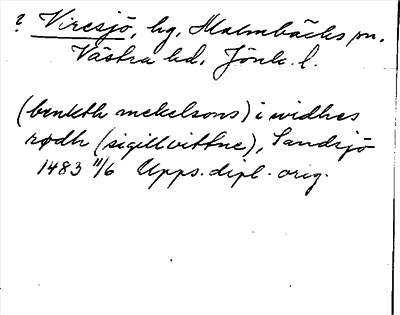 ? Viresjö, hg, Malmbäcks sn.
Västra hd, Jönk. l.
(benkth mekelsons) i widhes
rødh (sigillvittne), Sandsjö
1483 11/6 Upps. dipl. orig.